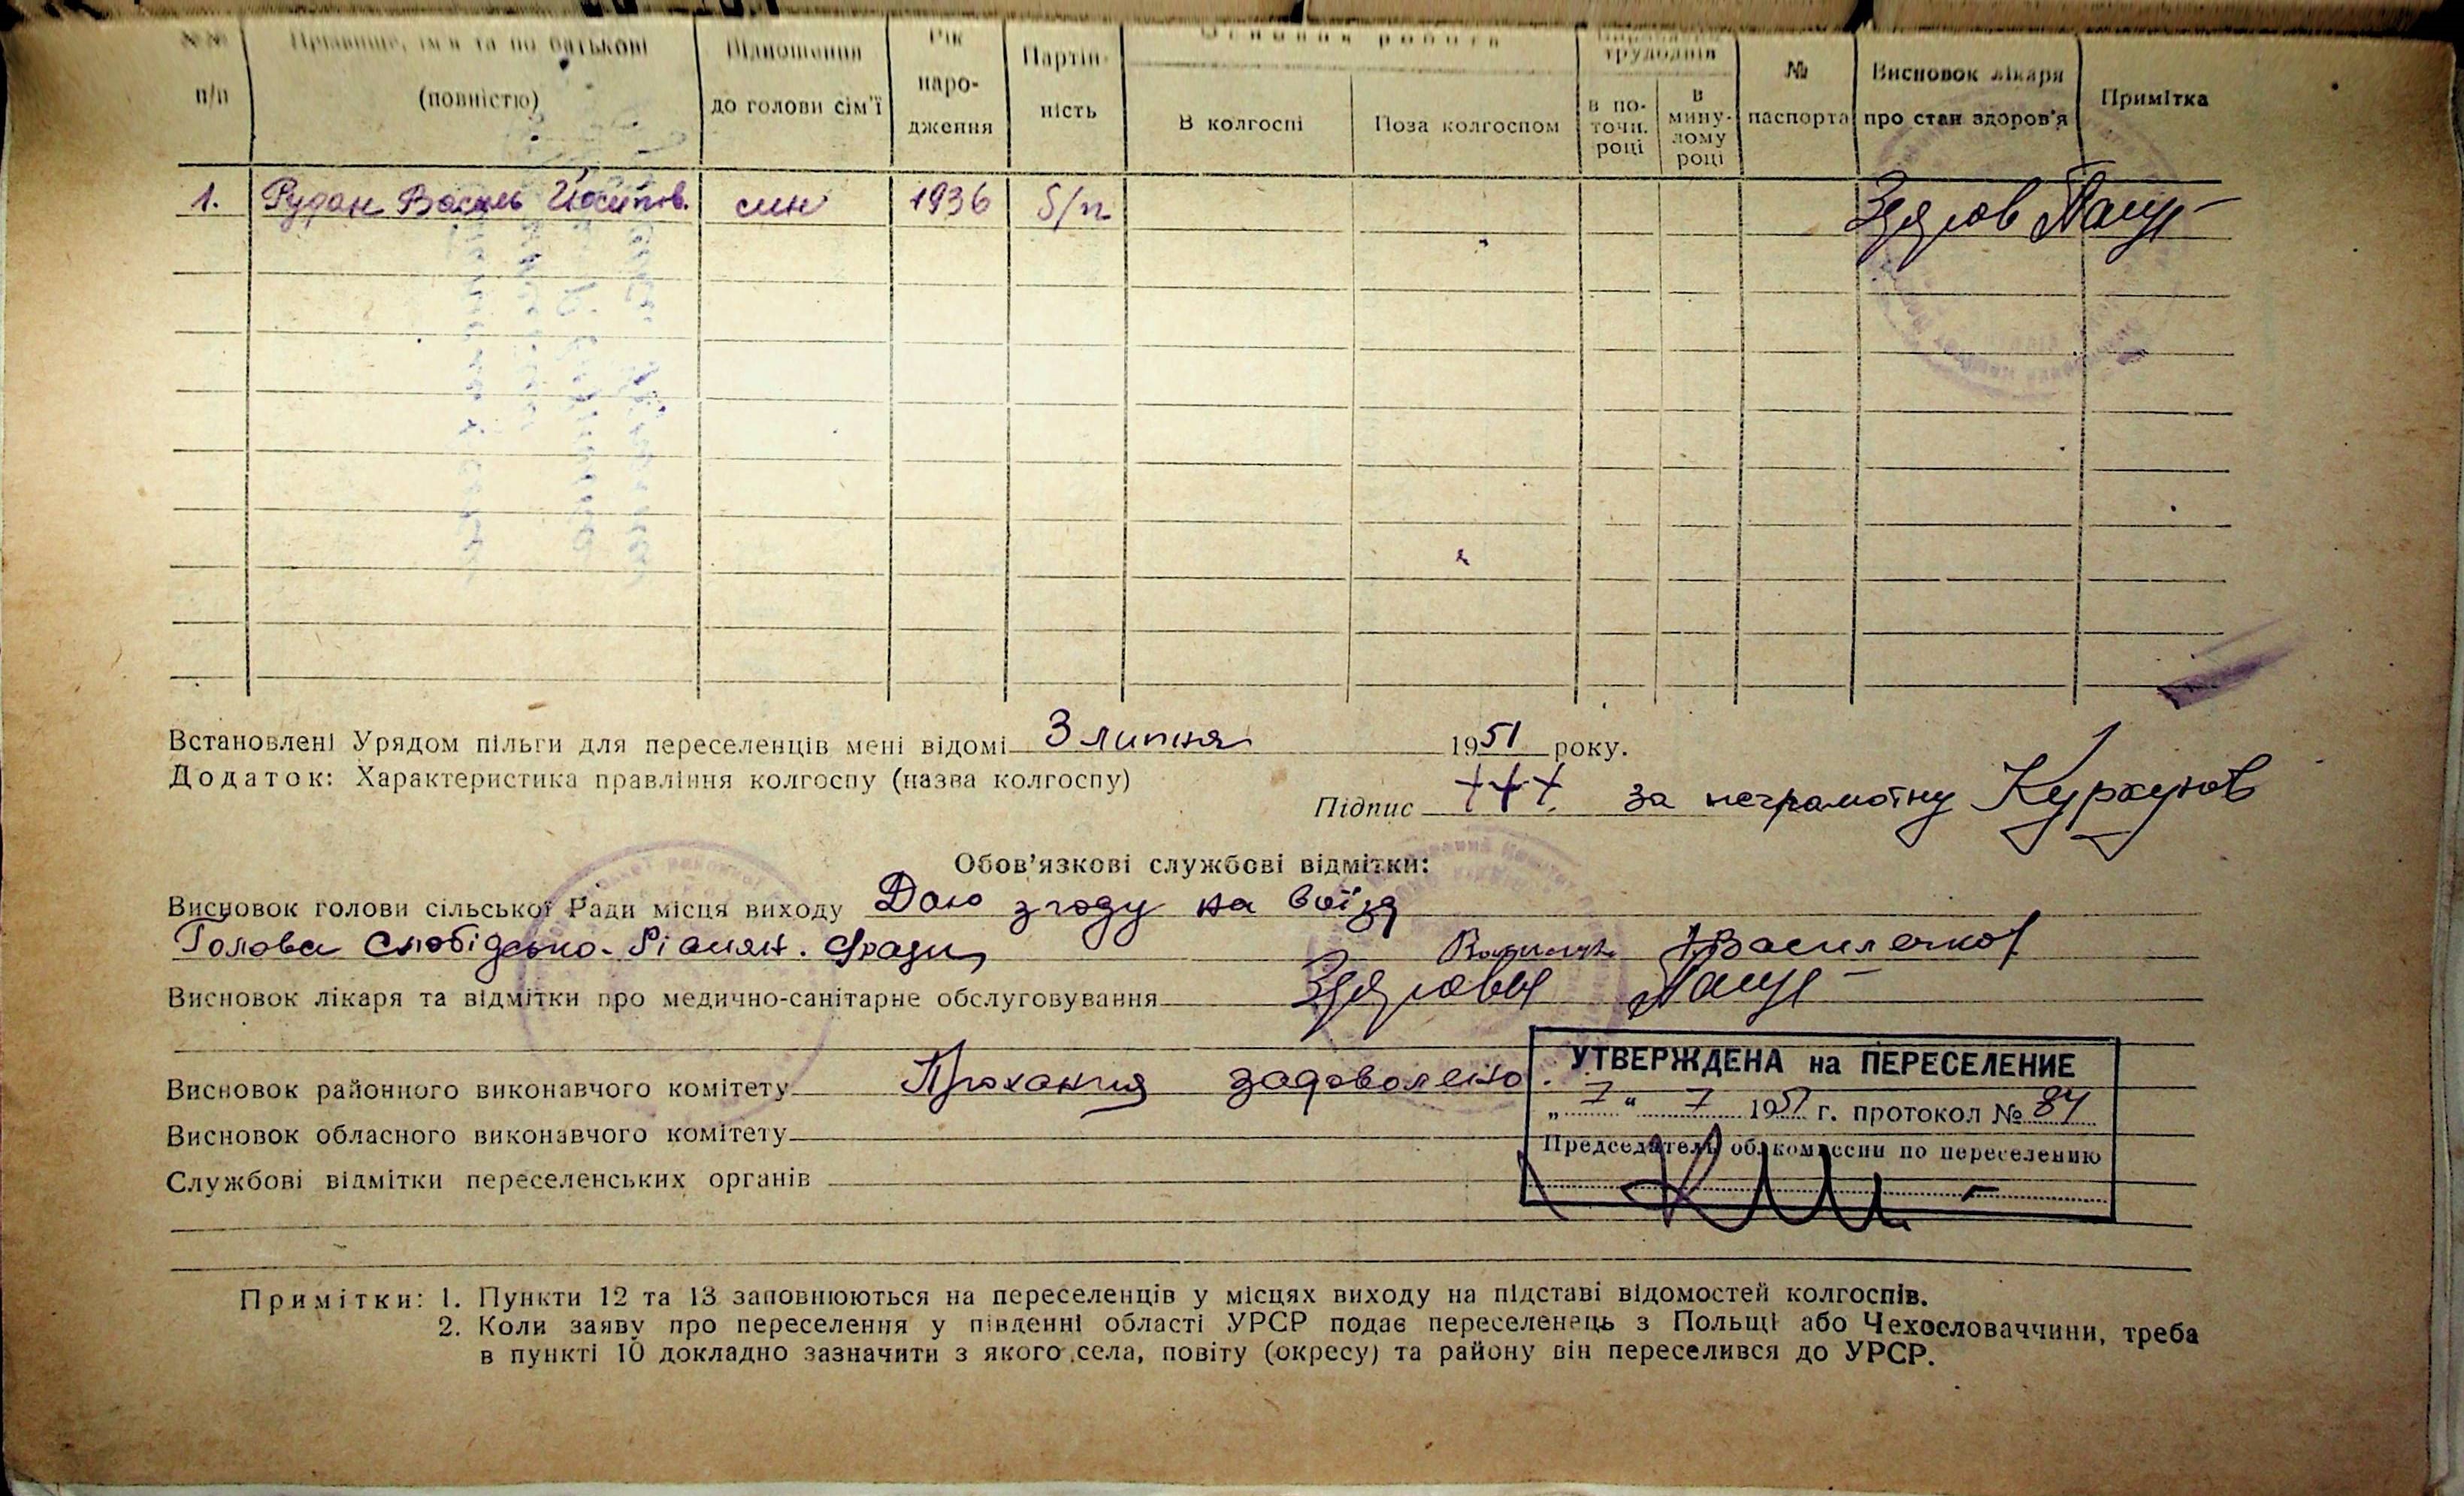 №№ Прізвище, ім'я та по батькові Відношення Рік Партій- Основна робота трудоднів № Висновок лікаря Примітка
п/п (повністю) до голови сім'ї наро- ність В колгоспі Поза колгоспом в по- в паспорта про стан здоров'я
дження точн. мину-
році лому
році
1. Рудан Василь Йосипов. син 1936 б/п Здоров
Встановлені Урядом пільги для переселенців мені відомі 3 липня 1951 року.
Додаток: Характеристика правління колгоспу (назва колгоспу)
Підпис +++ за неграмотну
Обов'язкові службові відмітки:
Висновок голови сільської Ради місця виходу Даю згоду на виїзд
Голова Слобідсько- с/ради
Висновок лікаря та відмітки про медично-санітарне обслуговування Здорові
Висновок районного виконавчого комітету Прохання задоволено.
Висновок обласного виконавчого комітету
Службові відмітки переселенських органів
УТВЕРЖДЕНА на ПЕРЕСЕЛЕНИЕ
„ 7 “ 7 1951 г. протокол № 84
Председатель облкомиссии по переселению
Примітки: 1. Пункти 12 та 13 заповнюються на переселенців у місцях виходу на підставі відомостей колгоспів.
2. Коли заяву про переселення у південні області УРСР подає переселенець з Польщі або Чехословаччини, треба
в пункті 10 докладно зазначити з якого села, повіту (окресу) та району він переселився до УРСР.